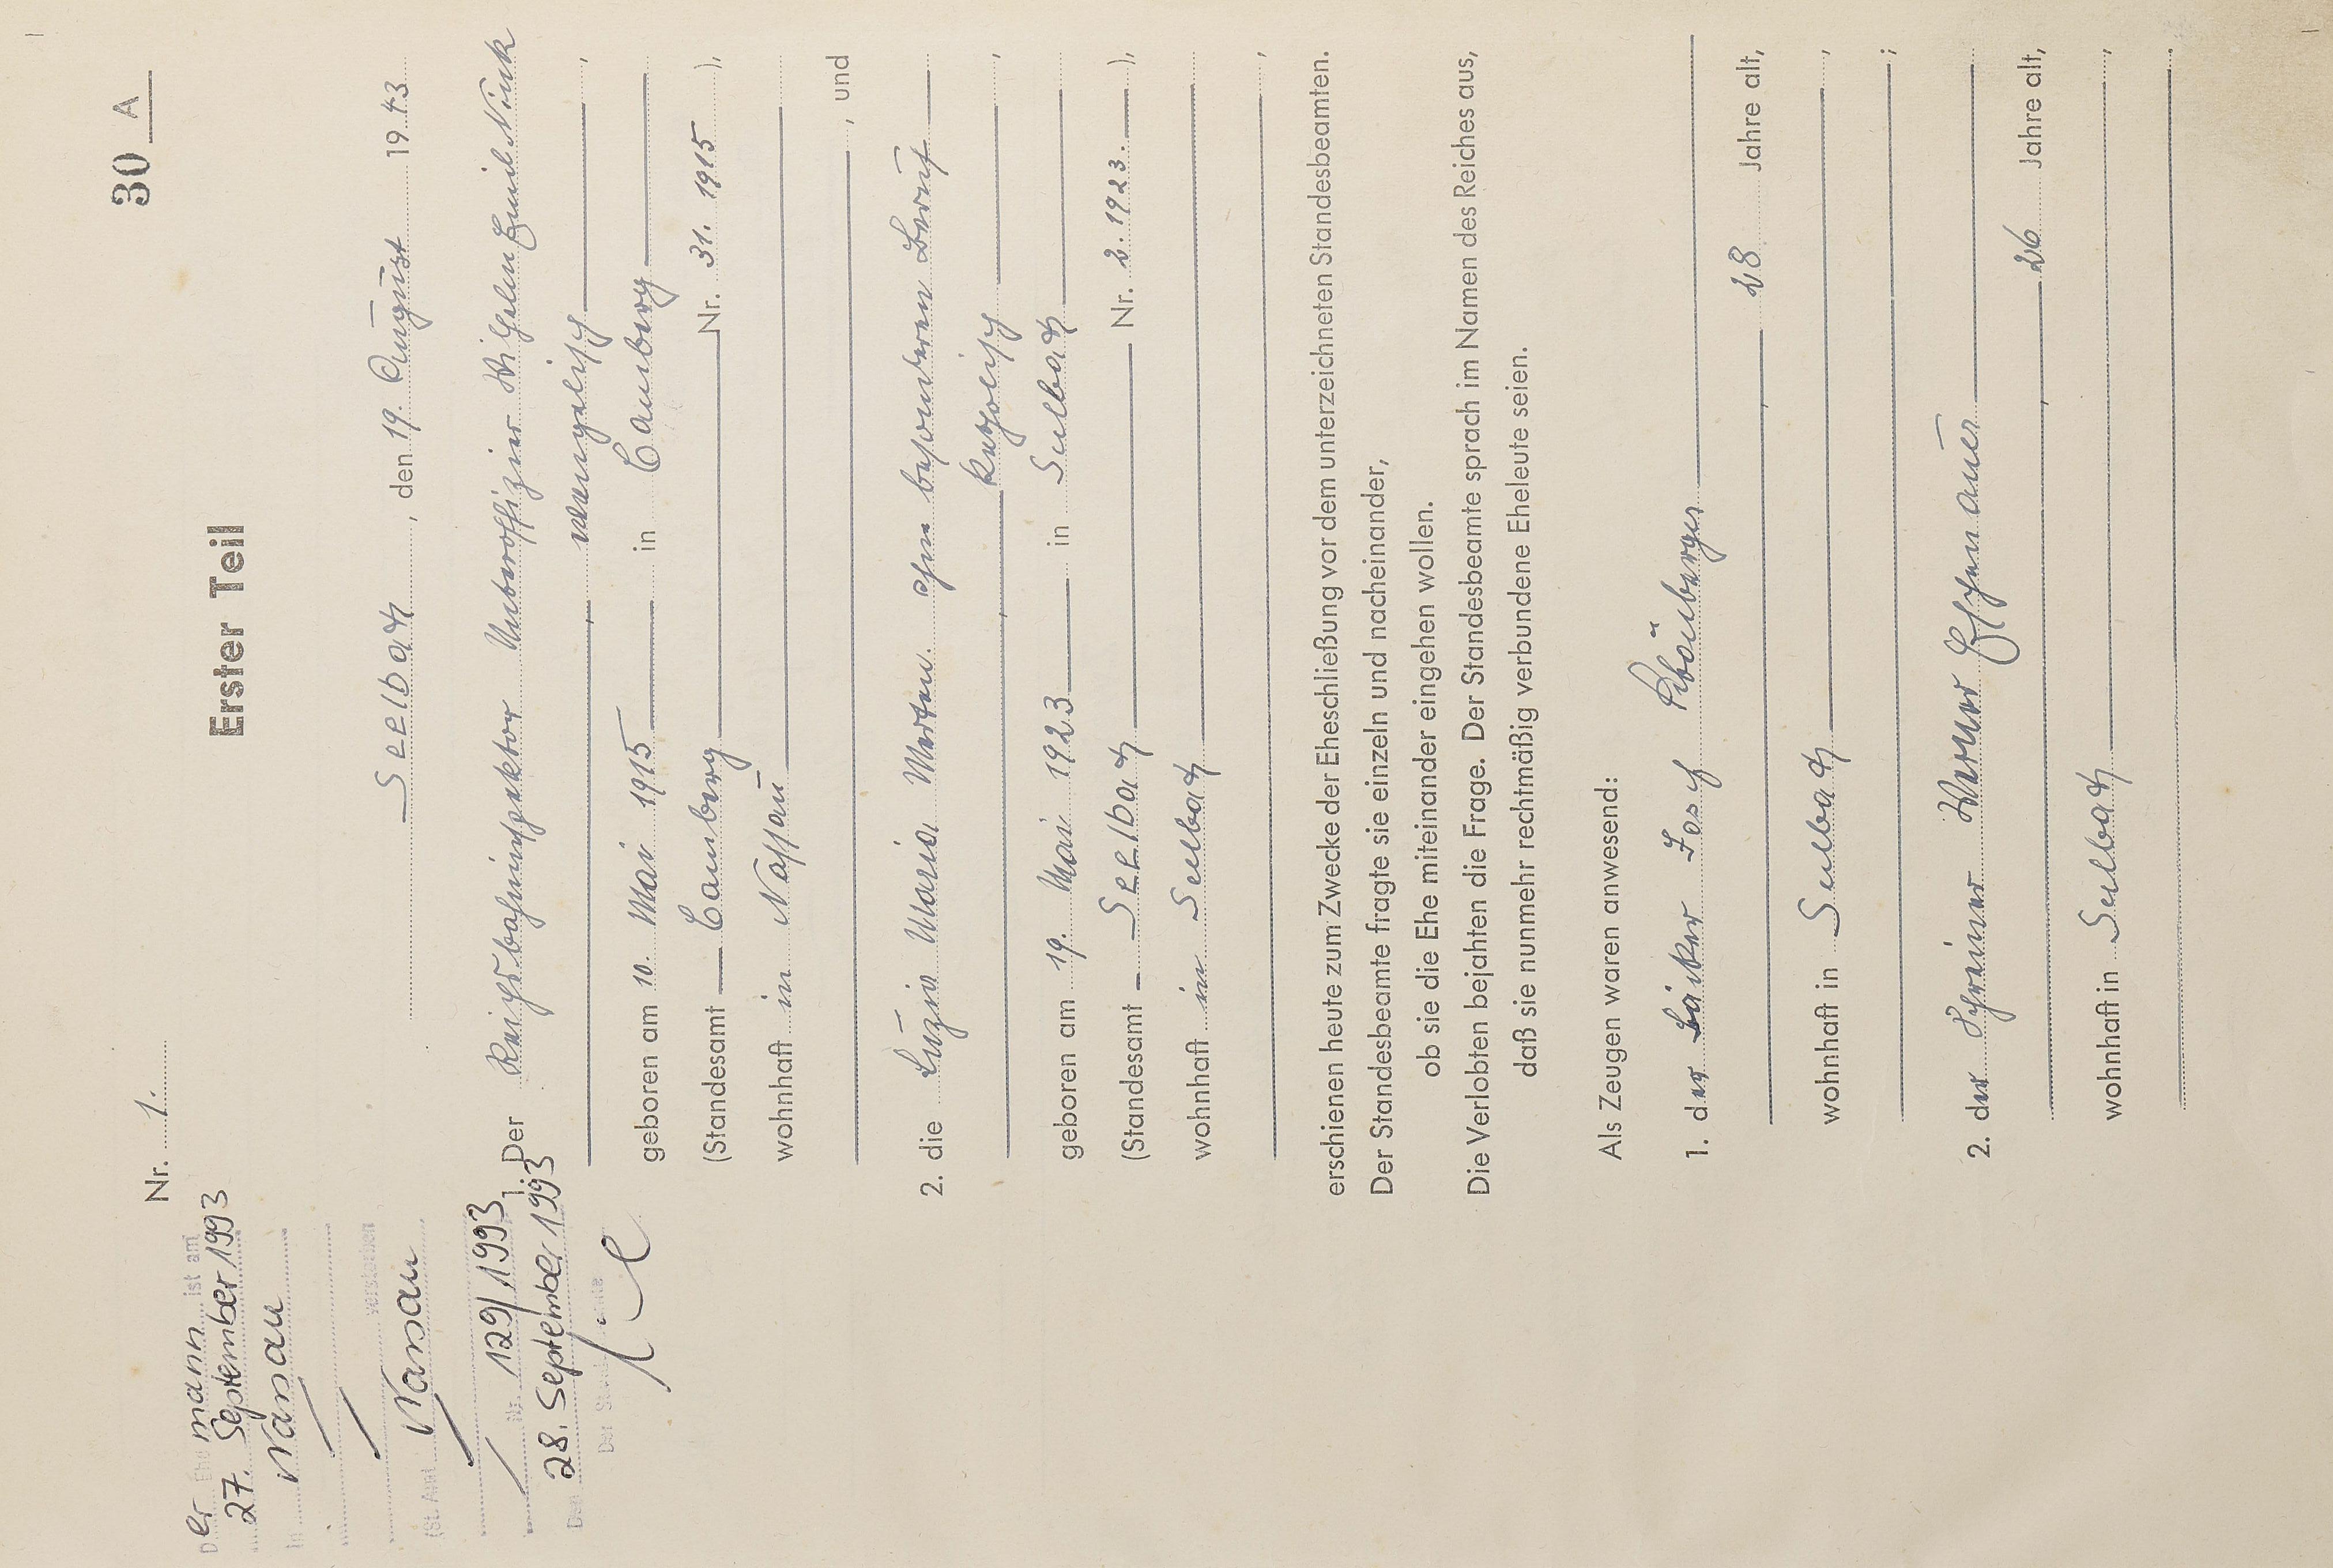 30 A
Nr. 1.
Erster Teil
Seelbach, den 19. August 1943
1. Der Reichsbahninspektor Unteroffizier Wilhelm Emil Nink
, evangelisch,
geboren am 10. Mai 1915 in Camberg
(Standesamt Camberg Nr. 31. 1915),
wohnhaft in Nassau
, und
2. die Luzia Maria Merten. ohne besonderen Beruf
, katholisch,
geboren am 19. Mai 1923 in Seelbach
(Standesamt Seelbach Nr. 2. 1923.),
wohnhaft in Seelbach
,
erschienen heute zum Zwecke der Eheschließung vor dem unterzeichneten Standesbeamten.
Der Standesbeamte fragte sie einzeln und nacheinander,
ob sie die Ehe miteinander eingehen wollen.
Die Verlobten bejahten die Frage. Der Standesbeamte sprach im Namen des Reiches aus,
daß sie nunmehr rechtmäßig verbundene Eheleute seien.
Als Zeugen waren anwesend:
1. der Bäcker Josef
, 28 Jahre alt,
wohnhaft in Seelbach,
;
2. der Schreiner Werner
, 26 Jahre alt,
wohnhaft in Seelbach,
.
Der Ehemann ist am
27. September 1993
in Nassau
verstorben
(St. Amt Nassau
Nr. 129/1993
Den 28. September 1993